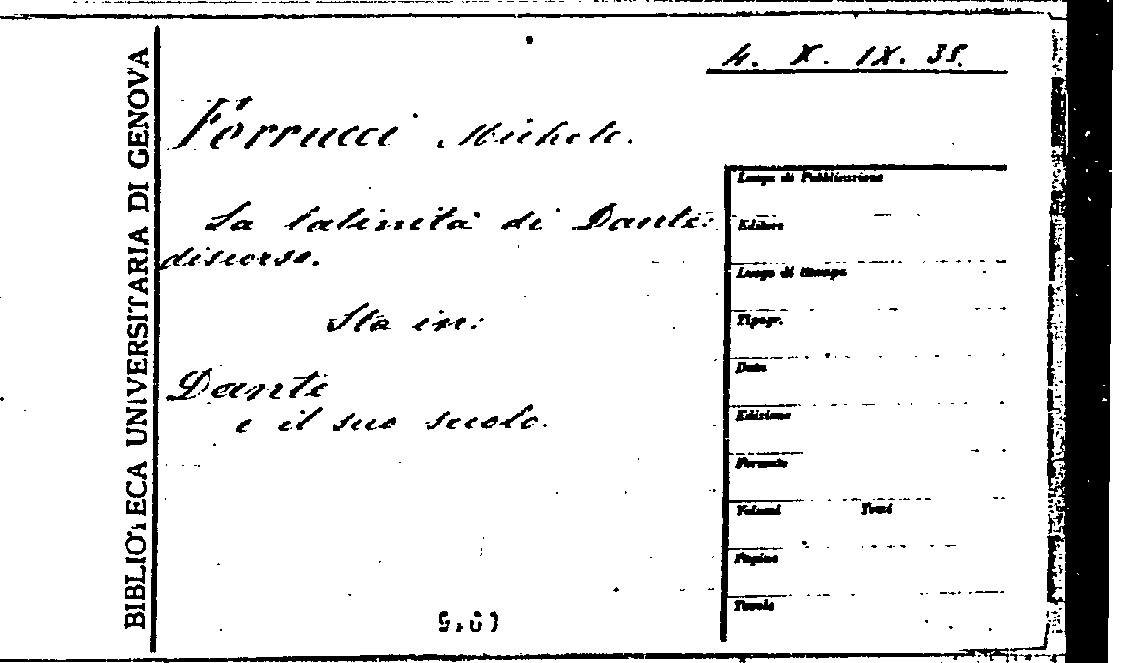 4. X. IX. 38.
BIBLIOTECA UNIVERSITARIA DI GENOVA
Ferrucci Michele.
La latinità di Dante:
discorso.
Sta in:
Dante
e il suo secolo.
Luogo di Pubblicazione
Editore
Luogo di stampa
Tipogr.
Data
Edizione
Formato
Volumi Tomi
Pagine
Tavole